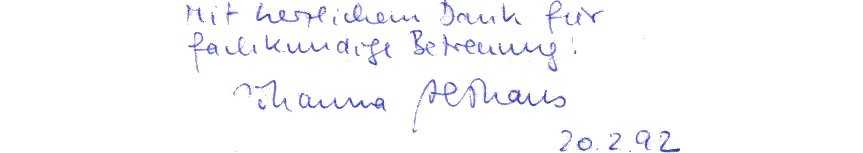 Mit herzlichem Dank für
fachkundige Betreuung!
Johanna Althaus
20.2.92